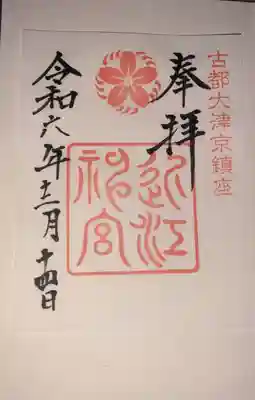 古都大津京鎮座
奉拝
近江神宮
令和六年十二月十四日